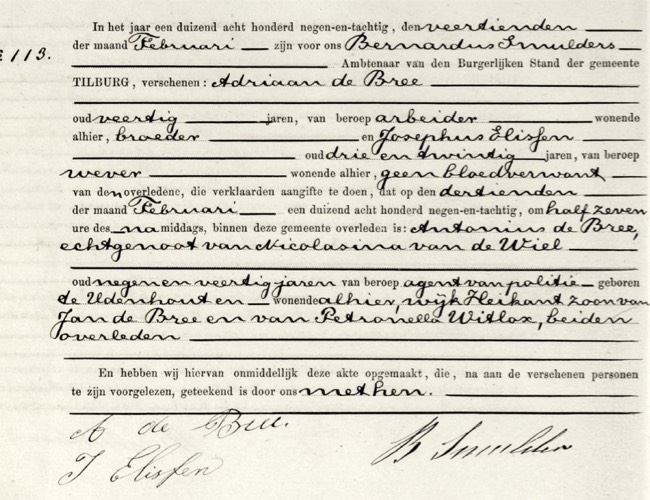 In het jaar een duizend acht honderd negen-en-tachtig, den veertienden
der maand Februari zijn voor ons Bernardus Smulders
№ 113.
Ambtenaar van den Burgerlijken Stand der gemeente
TILBURG, verschenen: Adriaan de Bree
oud veertig jaren, van beroep arbeider wonende
alhier, broeder en Josephus Elissen
oud drie en twintig jaren, van beroep
wever wonende alhier, geen bloedverwant
van den overledene, die verklaarden aangifte te doen, dat op den dertienden
der maand Februari een duizend acht honderd negen-en-tachtig, om half zeven
ure des na middags, binnen deze gemeente overleden is: Antonius de Bree,
echtgenoot van Nicolasina van de Wiel
oud negen en veertig jaren van beroep agent van politie geboren
de Udenhout en wonende alhier, wijk Heikant zoon van
Jan de Bree en van Petronella Witlox, beiden
overleden
En hebben wij hiervan onmiddelijk deze akte opgemaakt, die, na aan de verschenen personen
te zijn voorgelezen, geteekend is door ons met hen.
A de Bree.
B Smulders
J Elissen